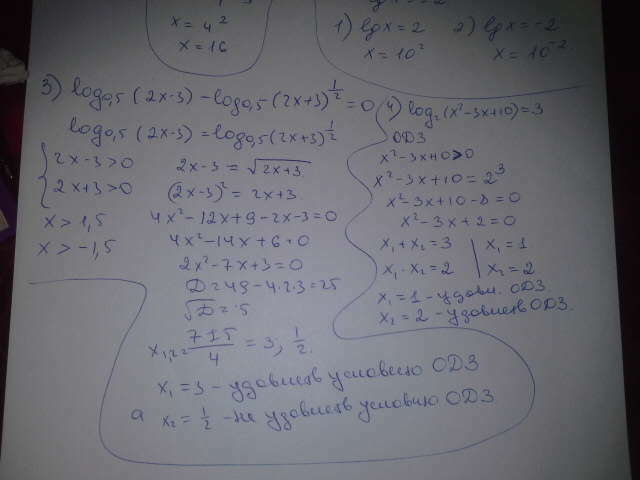 x = 4²
x = 16
lg x = -2
1) lg x = 2
2) lg x = -2
x = 10²
x = 10⁻².
3) log₀,₅ (2x-3) - log₀,₅ (2x+3)^½ = 0
log₀,₅ (2x-3) = log₀,₅ (2x+3)^½
{ 2x-3 > 0
2x+3 > 0
x > 1,5
x > -1,5
2x-3 = √2x+3
(2x-3)² = 2x+3
4x²-12x+9-2x-3=0
4x²-14x+6=0
2x²-7x+3=0
D = 49-4·2·3=25
√D = 5
x₁,₂ = 7±5/4 = 3, ½.
x₁ = 3 - удовлетв условию ОДЗ
а x₂ = ½ - не удовлетв условию ОДЗ
4) log₂ (x²-3x+10)=3
ОДЗ
x²-3x+10>0
x²-3x+10=2³
x²-3x+10-8=0
x²-3x+2=0
x₁+x₂=3 | x₁=1
x₁·x₂=2 | x₂=2
x₁=1 - удовл. ОДЗ.
x₂=2 - удовлетв ОДЗ.